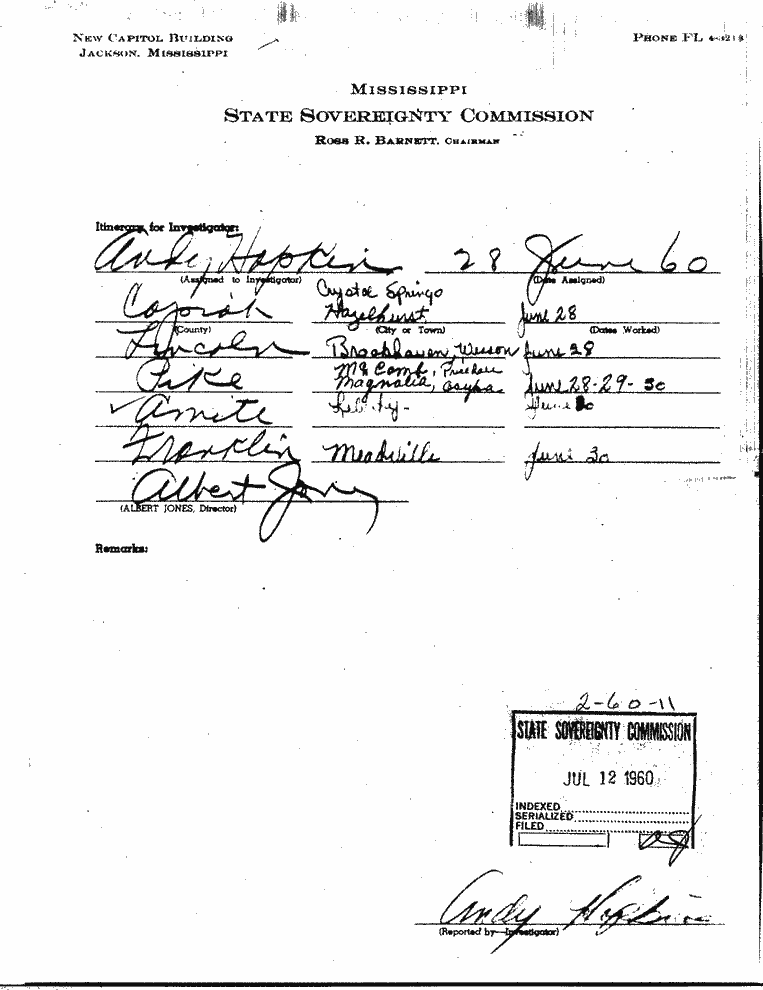 NEW CAPITOL BUILDING
JACKSON, MISSISSIPPI
PHONE FL 4-3218
MISSISSIPPI
STATE SOVEREIGNTY COMMISSION
ROSS R. BARNETT, CHAIRMAN
Itinerary for Investigator:
Andy Hopkin 28 June 60
(Assigned to Investigator) (Date Assigned)
Crystal Springs
Copiah Hazelhurst June 28
(County) (City or Town) (Dates Worked)
Lincoln Brookhaven, Wesson June 28
Mc Comb,
Pike Magnolia, Osyka June 28-29-30
✓ Amite Liberty- June 30
Franklin Meadville June 30
Albert Jones
(ALBERT JONES, Director)
Remarks:
2-60-11
STATE SOVEREIGNTY COMMISSION
JUL 12 1960
INDEXED
SERIALIZED
FILED
Andy Hopkins
(Reported by Investigator)